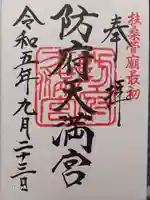 扶桑菅廟最初
奉拝
防府天満宮
令和五年九月二十三日